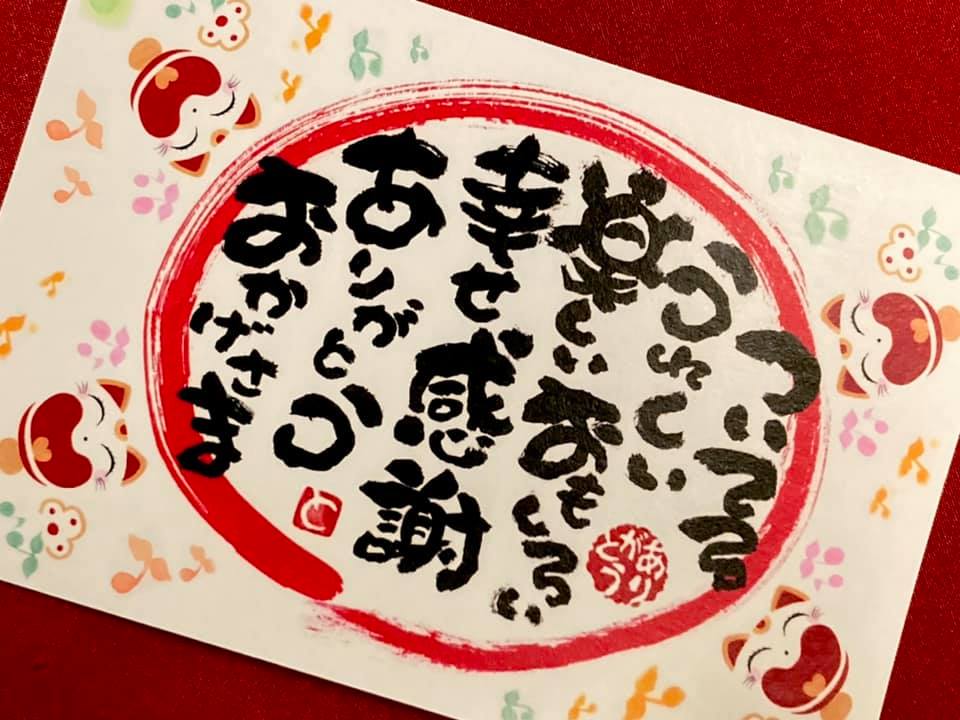 ついてる
うれしい
楽しい おもしろい
幸せ 感謝
ありがとう
おかげさま
ありがとう
と